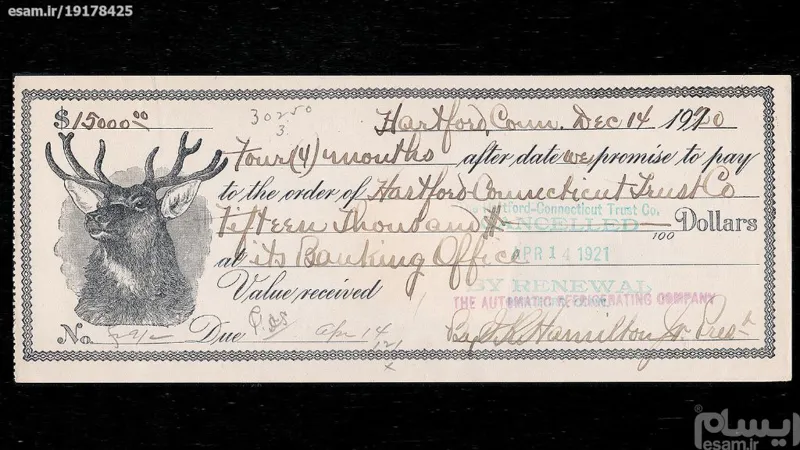 esam.ir/19178425
$15000.00
30250
3
Hartford, Conn. Dec 14 1920
Four (4) months after date we promise to pay
to the order of Hartford-Connecticut Trust Co
Hartford-Connecticut Trust Co.
Fifteen Thousand Dollars
CANCELLED
100
APR 14 1921
at its Banking Office
BY RENEWAL
Value received
THE AUTOMATIC REFRIGERATING COMPANY
No. Due Apr 14
By Hamilton Jr. Prest
ایسام
esam.ir